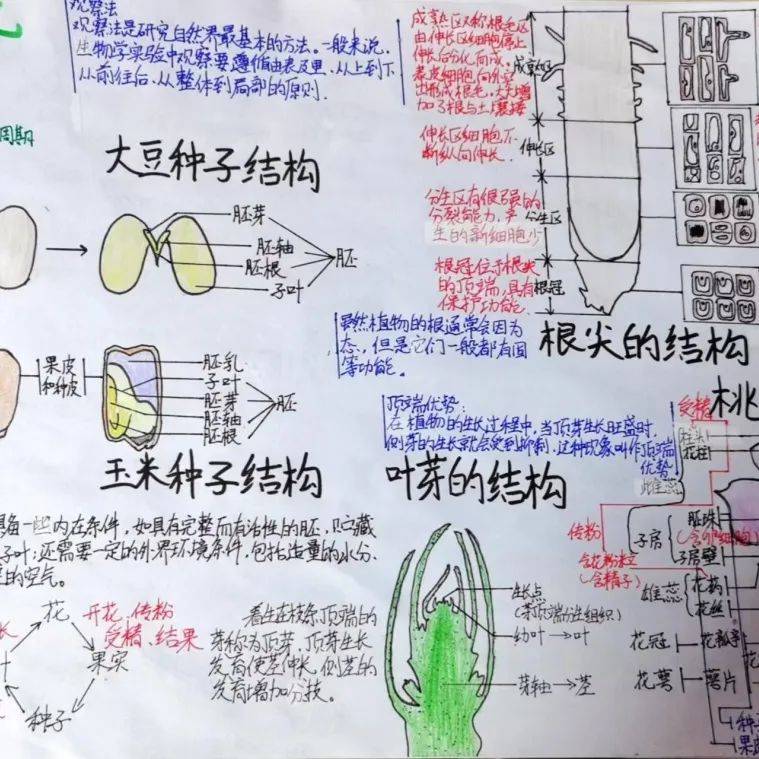 观察法
观察法是研究自然界最基本的方法。一般来说,
生物学实验中观察要遵循由表及里、从上到下
从前往后、从整体到局部的原则.
周期
大豆种子结构
胚芽
胚轴
胚根
子叶
胚
果皮
和种皮
胚乳
子叶
胚芽
胚轴
胚根
胚
玉米种子结构
一些内在条件，如具有完整而有活性的胚，贮藏
子叶；还需要一定的外界环境条件，包括适量的水分、
的空气。
花
果实
种子
叶
开花、传粉
受精、结果
着生在枝条顶端的
芽称为顶芽，顶芽生长
发育使茎伸长，侧芽的
发育增加分枝。
成熟区又称根毛区
由伸长区细胞停止
伸长后分化而成。
表皮细胞向外突
出形成根毛，大大增
加了根与土壤接
伸长区细胞不
断纵向伸长.
分生区有很强的
分裂能力，产
生的新细胞小
根冠位于根尖
的顶端，具有
保护功能.
成熟区
伸长区
分生区
根冠
根尖的结构
虽然植物的根通常会因为
态，但是它们一般都有固
等功能。
顶端优势：
在植物的生长过程中，当顶芽生长旺盛时，
侧芽的生长就会受到抑制，这种现象叫作顶端
优势
叶芽的结构
生长点
(芽顶端分生组织)
幼叶→叶
芽轴→茎
桃
受精
柱头
花柱
雌蕊
子房
胚珠
(含卵细胞)
子房壁
传粉
含花粉粒
(含精子)
雄蕊
花药
花丝
花冠
花瓣
花萼
萼片
种
果